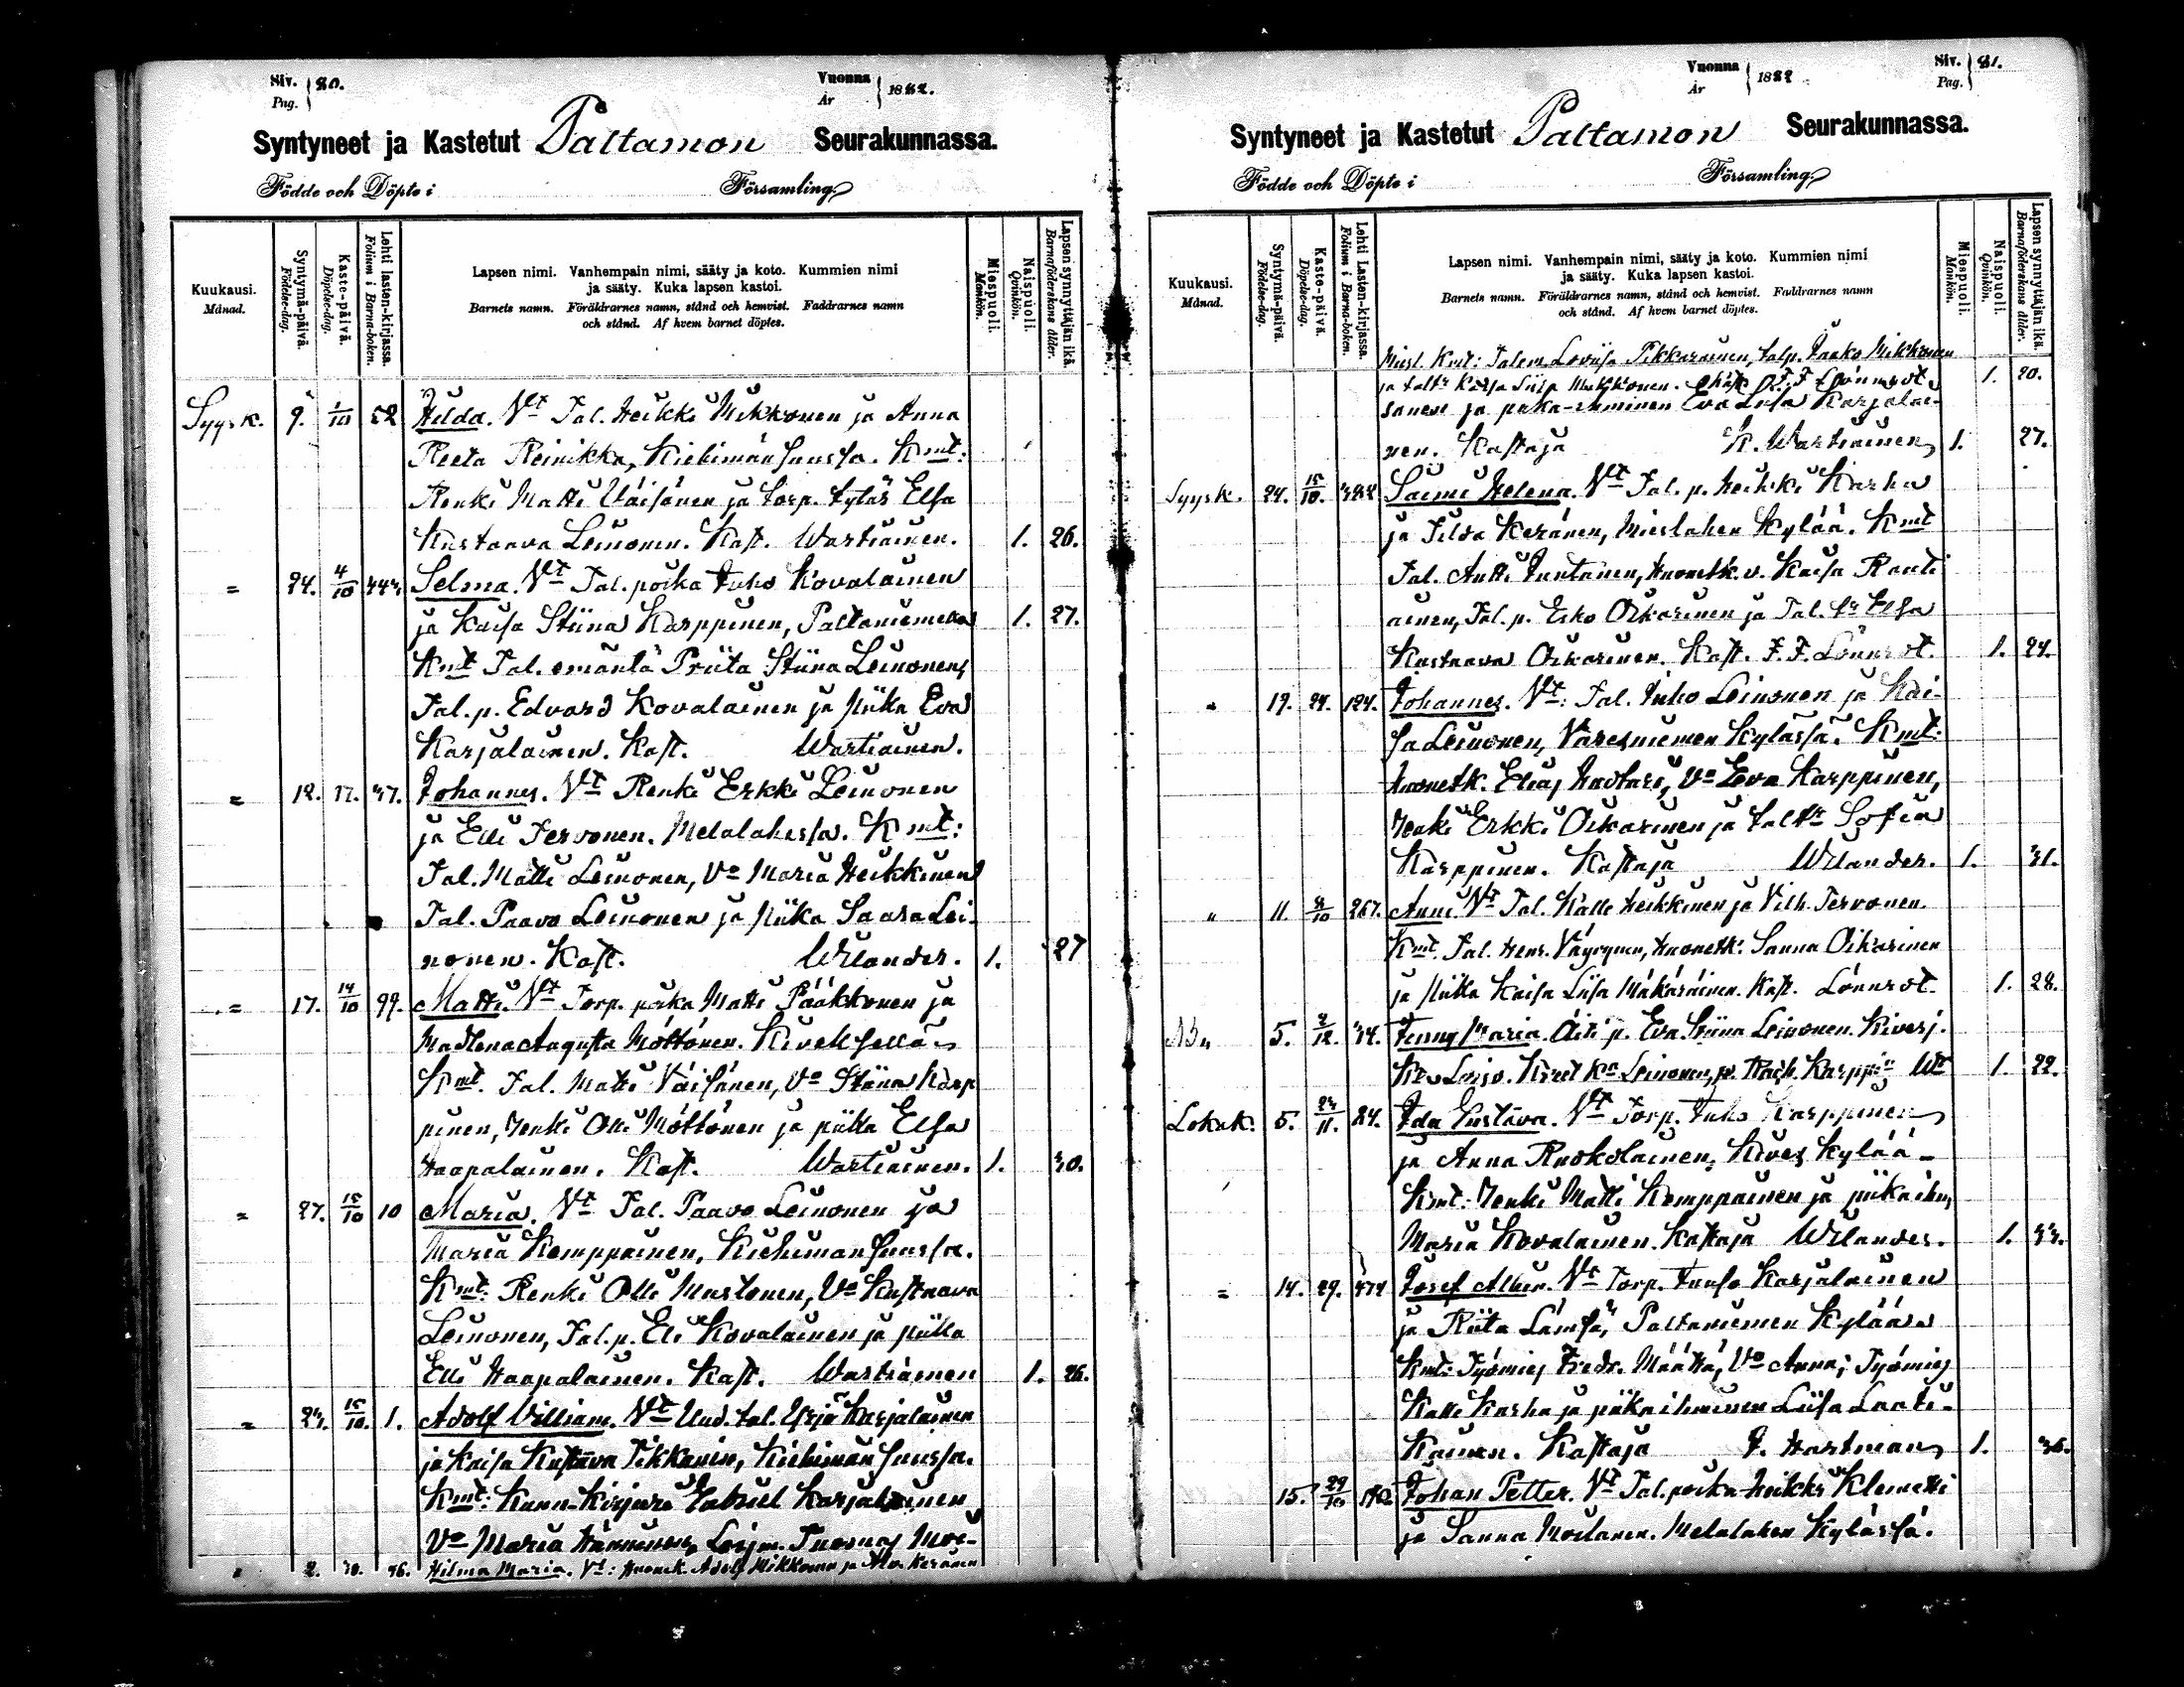 Siv. 80.
Pag.
Vuonna 1882.
År
Syntyneet ja Kastetut Paltamon Seurakunnassa.
Födde och Döpte i Församling.
Kuukausi.
Månad.
Syntymä-päivä.
Födelse-dag.
Kaste-päivä.
Döpelse-dag.
Lehti lasten-kirjassa.
Folium i Barna-boken.
Lapsen nimi. Vanhempain nimi, sääty ja koto. Kummien nimi
ja sääty. Kuka lapsen kastoi.
Barnets namn. Föräldrarnes namn, stånd och hemvist. Faddrarnes namn
och stånd. Af hvem barnet döptes.
Miespuoli.
Mankön.
Naispuoli.
Qvinkön.
Lapsen synnyttäjän ikä.
Barnaföderskans ålder.
Syysk. 9. 1/10 52 Hilda. Vt Tal. Heikki Mikkonen ja Anna
Reeta Reinikka, Kiehimänsuussa. Kmt:
Renki Matti Väisänen ja torp. tytär Elsa
Kustaava Leinonen. Kast. Wartiainen. 1. 26.
= 24. 4/10 Selma. Vt Tal. poika Juho Kovalainen
ja Kaisa Stiina Karppinen, Paltaniemeltä 1. 27.
Kmt Tal. emäntä Priita Stiina Leinonen,
Tal. p. Edvard Kovalainen ja piika Eva
Karjalainen. Kast. Wartiainen.
= 12. 17. 37. Johannes. Vt Renki Erkki Leinonen
ja Elli Tervonen. Melalahessa. Kmt:
Tal. Matti Leinonen, Vo Maria Heikkinen
Tal. Paavo Leinonen ja piika Saara Lei-
nonen. Kast. Wilander. 1. 27
= 17. 14/10 99. Matti. Vt Torp. poika Matti Pääkkönen ja
Madlena Augusta Möttönen. Kiveksellä.
Kmt. Tal. Matti Väisänen, Vo Stiina Karp
pinen, renki Olli Möttönen ja piika Elsa
Haapalainen. Kast. Wartiainen. 1. 30.
= 27. 15/10 10 Maria. Vt Tal. Paavo Leinonen ja
Maria Kemppainen, Kiehimänsuussa.
Kmt: Renki Olli Mustonen, Vo Kustaava
Leinonen, Tal. p. Eli Kovalainen ja piika
Elli Haapalainen. Kast. Wartiainen 1. 26.
= 23. 15/10. 1. Adolf William. Vt Uud. tal. Yrjö Karjalainen
ja Kaisa Kustava Tikkanen, Kiehimänsuussa.
Kmt: Kunn. Kirjuri Gabriel Karjalainen
Vo Maria Hänninen, Loism. Tuomas Moi-
2. 30. 96. Hilma Maria. Vt: Huonek. Adolf Mikkonen ja Keränen
Siv. 81.
Pag.
Vuonna 1882
År
Syntyneet ja Kastetut Paltamon Seurakunnassa.
Födde och Döpte i Församling.
Kuukausi.
Månad.
Syntymä-päivä.
Födelse-dag.
Kaste-päivä.
Döpelse-dag.
Lehti Lasten-kirjassa.
Folium i Barna-boken.
Lapsen nimi. Vanhempain nimi, sääty ja koto. Kummien nimi
ja sääty. Kuka lapsen kastoi.
Barnets namn. Föräldrarnes namn, stånd och hemvist. Faddrarnes namn
och stånd. Af hvem barnet döptes.
Miespuoli.
Mankön.
Naispuoli.
Qvinkön.
Lapsen synnyttäjän ikä.
Barnaföderskans ålder.
Kmt: Talem. Loviisa Pikkarainen, talp. Jaako Mikkonen
ja taltr Kaisa Liisa Mikkonen. F. F. Lönnrot 1. 20.
sanen ja piika-ihminen Eva Liisa Karjalai-
nen. Kastaja K. Wartiainen 1. 27.
Syysk. 24. 15/10. Saimi Helena. Vt Tal. p. Heikki Karhu
ja Tilda Keränen, Mieslahen Kylää. Kmt
Tal. Antti Juntunen, Huonetk. v. Kaisa Rauti
ainen, Tal. p. Esko Oikarinen ja Tal. tr Elsa
Kustaava Oikarinen. Kast. F. F. Lönnrot. 1. 24.
" 19. 24. 124. Johannes. Vt: Tal. Juho Leinonen ja Kai-
sa Leinonen, Varesniemen Kylässä. Kmt:
Huonetk. Elias Huotari, Vo Eeva Karppinen,
renki Erkki Oikarinen ja taltr Sofia
Karppinen. Kastaja Wilander. 1. 31.
" 11. 8/10 267. Anni Vt Tal. Kalle Heikkinen ja Vilh. Tervonen.
Kmt. Tal. Henr. Väyrynen, Huonetk. Sanna Oikarinen
ja piika Kaisa Liisa Mäkäräinen. Kast. Lönnrot 1. 28.
5. 2/12. 34. Jenny Maria. Äiti p. Eva Stiina Leinonen. Kivesj.
Leinonen, 1. 22.
Lokak. 5. 23/11. 84. Ida Gustava. Vt Torp. Juho Karppinen
ja Anna Ruokolainen, Kives Kylää -
Kmt: Renki Matti Kemppainen ja piika ihm,
Maria Kovalainen. Kastaja Wilander. 1. 33.
= 14. 29. 474 Josef Albin. Vt Torp. Juuso Karjalainen
ja Riita Lämsä, Paltaniemen Kylää
Kmt: Työmies Fredr. Määttä, Vo Anna; Työmies
Kalle Karhu ja piika ihminen Liisa Laati-
kainen. Kastaja F. Hartman 1. 36.
15. 29/10 Johan Petter. Vt Tal. poika Heikki Klemetti
ja Sanna Moilanen. Melalahen Kylässä.